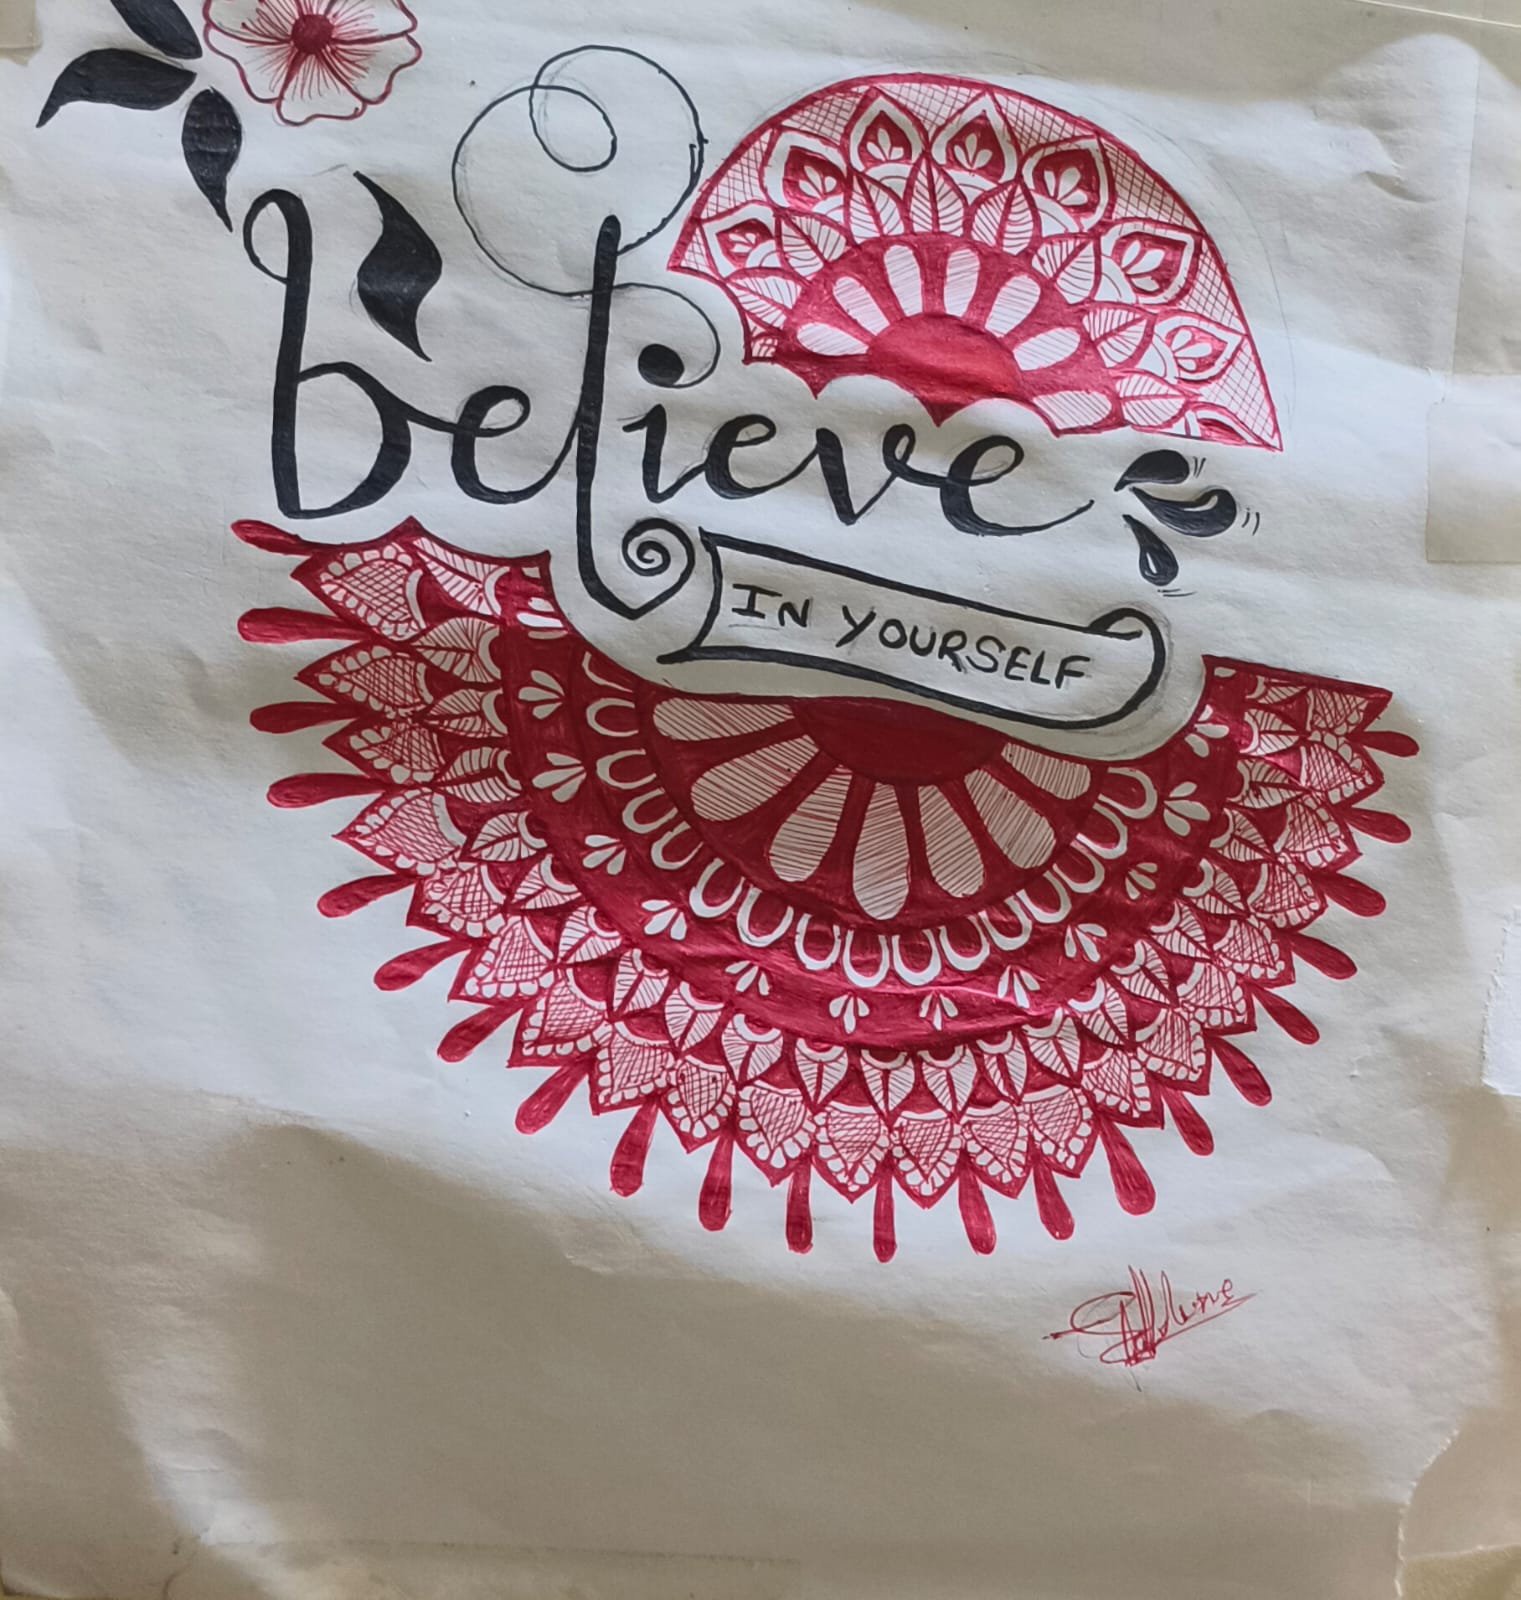 believe
IN YOURSELF